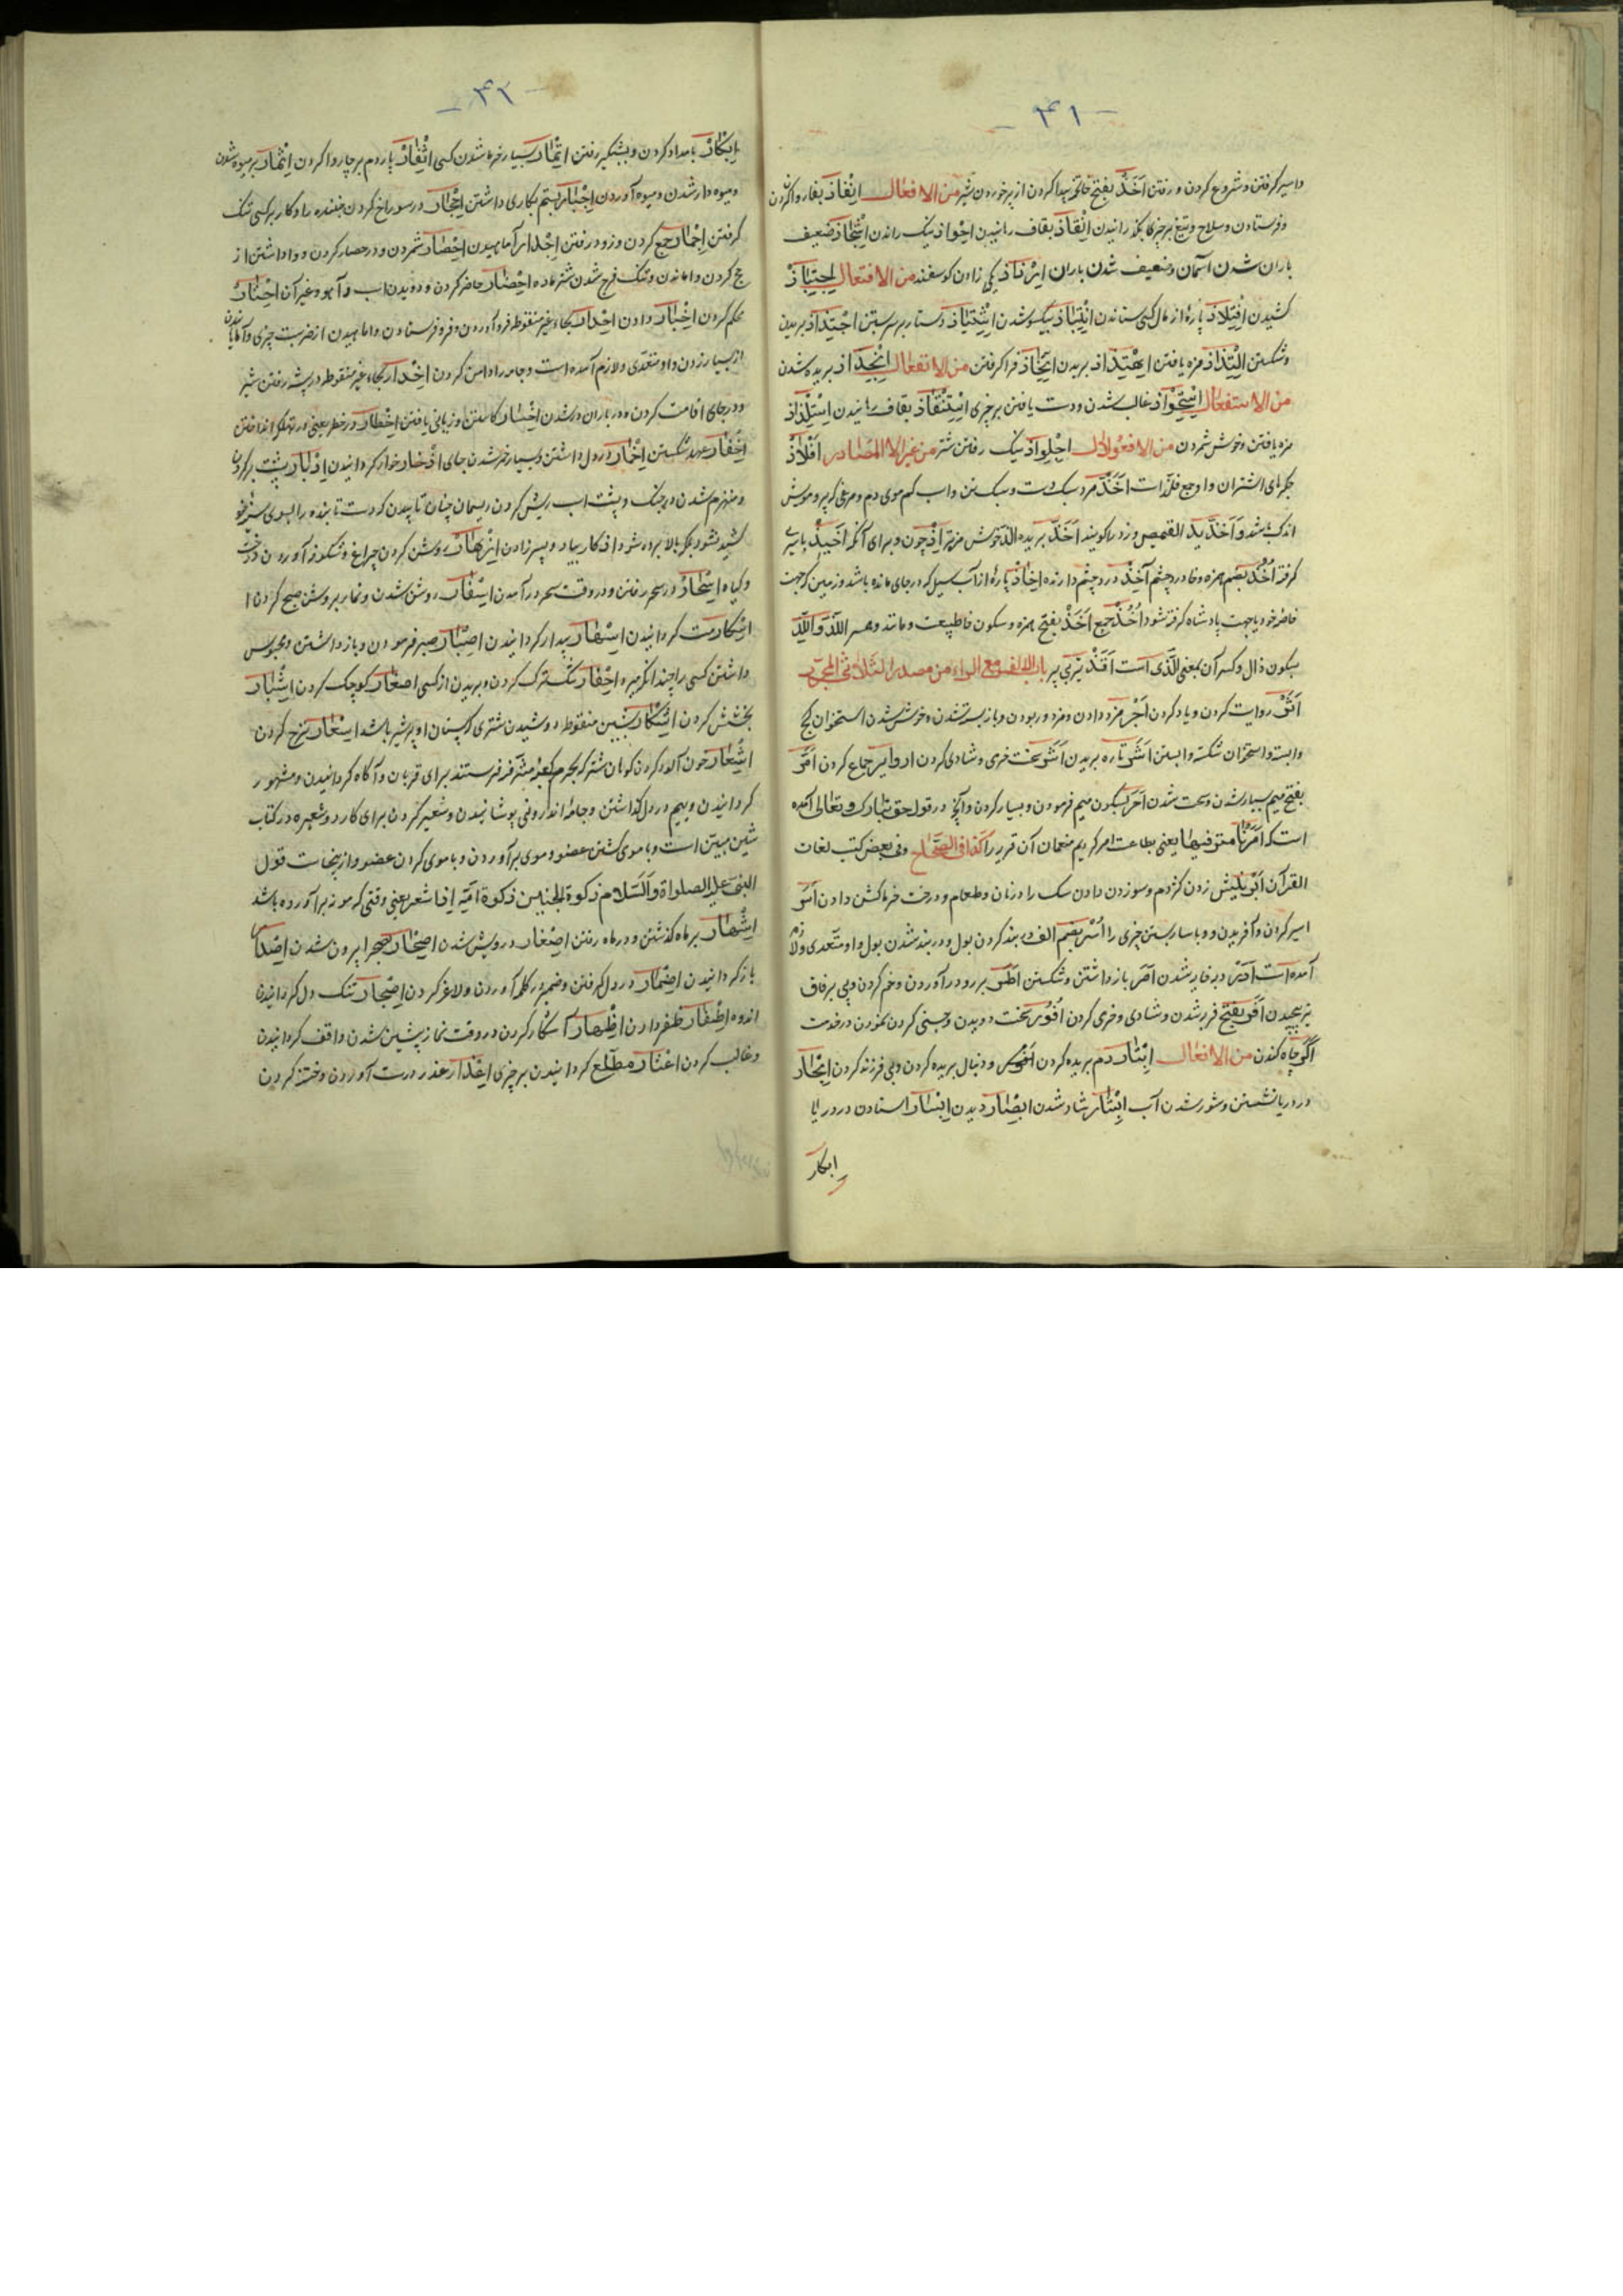 - ۴۱ -
و اسیر گرفتن و شروع کردن و رفتن اَخَذْ بفتح خا تخمه پیدا کردن از پر خوردن شیر من الافعال اِنْفاذ بفا روا کردن
و فرستادن و سلاح و تیغ بر چیزی بگذرانیدن اِنْقاذ بقاف رهانیدن اِحْواذ نیک راندن اِشْجاذ ضعیف
باران شدن آسمان و ضعیف شدن باران یکی زادن کوسفند من الافتعال اِجْتِباذْ
کشیدن اِفْتِلاذ پارهٔ از مال کسی ستاندن اِنْتِباذ بیکسو شدن اِشْتِیاذ دستار بر سر بستن اِجْتِذاذ بریدن
و شکستن اِلْتِذاذ مزه یافتن بریدن اِتِّخاذ فرا گرفتن من الانفعال اِنْجِذاذ بریده شدن
من الاستفعال اِسْتِحْواذ غالب شدن و دست یافتن بر چیزی اِسْتِنْقاذ بقاف رهانیدن اِسْتِلْذاذ
مزه یافتن و خوش شمردن من الافعوّال اِجْلِوّاذ نیک رفتن شتر من غیر المصادر اَفْلاذْ
جگرهای اشتران و او جمع فلذ است اَحَذّ مرد سبک دست و سبک تن و اسب کم موی دم و مرغی که پر و مویش
اندک باشد و اَحَذّ ید القمیص دزد را کویند اَحَذّ بریده اَلَذّ خوش مزه‌تر اِذْ چون و برای آنکه اَخیذْ باسیری
گرفته اُخُذْ بضم همزه و خا درد چشم آخِذْ درد چشم دارنده اِخاذْ پارهٔ از آب سیل که در جای مانده باشد و زمین که جهت
خاصهٔ خود یا جهت پادشاه گرفته شود اُخُذْ جمع اَخْذْ بفتح همزه و سکون خا طبیعت و مانند و همسر اَللَّذْ و اَللَّذِ
بسکون ذال و کسر آن بمعنی اَلَّذی است اَقَذّ تیر بی پر باب الالف مع الراء من مصدر الثلاثی المجرد
اَثْر روایت کردن و یاد کردن اَجْر مزد دادن و مزدور بودن و باز بسته شدن و خوش شدن استخوان کج
و ابسته و استخوان شکسته وا بستن اَشْر تاره بریدن اَشَر سخت خرمی و شادی کردن جماع کردن اَمَر
بفتح میم بسیار شدن و سخت شدن اَمْر بسکون میم فرمودن و بسیار کردن و آنچه در قول حق تبارک و تعالی آمده
است که اَمَرْنا مترفیها یعنی بطاعت امر کردیم منعمان آن قریه را کذا فی الصحاح و فی بعض کتب لغات
القرآن اَبْر نیش زدن کژدم و سوزن دادن سک را در نان و طعام و درخت خرما کشن دادن اَسْر
اسیر کردن و آفریدن و وبا سار بستن چیزی را اُسْر بضم الف بند کردن بول و دربند شدن بول و او متعدی و لازم
آمده است دبه خایه شدن اَصْر باز داشتن و شکستن اَطْر بر رود آوردن و خم کردن و پی بر فاق
تیر پیچیدن اَفَر بفتح فربه شدن و شادی و خرمی کردن اُفُور سخت دویدن و جستی کردن نمودن در خدمت
اَکْر چاه کندن من الافعال اِبْتار دم بریده کردن و دنبال بریده کردن و بی فرزند کردن اِبْحار
در دریا نشستن و شور شدن آب اِبْشار شاد شدن اِبْصار دیدن استادن در دریا
ابکار
- ۴۲ -
اِبْکارْ بامداد کردن و بشبگیر رفتن اِتْمار بسیار خرما شدن کسی اِثْفار پاردم بر چاروا کردن اِثْمار پر میوه شدن
و میوه دار شدن و میوه آوردن اِجْبار بستم بکاری داشتن اِجْحار در سوراخ کردن جنبنده را و کار بر کسی تنک
گرفتن اِجْمار جمع کردن و زود رفتن آماهیدن اِحْصار شمردن و در حصار کردن و وا داشتن از
حج کردن و واماندن و تنک فرج شدن شتر ماده اِحْضار حاضر کردن و دویدن اسب و آهو و غیر آن
محکم کردن اِخْبار دادن اِحْدار بحاء غیر منقوطه فرود آوردن و فرو فرستادن و واماهیدن از ضربت چیزی
از بسیار زدن و او متعدی و لازم آمده است و جامه را دامن کردن اِخْدار بخاء غیر منقوطه در پشه رفتن شیر
و در جای اقامت کردن و در باران در شدن اِخْسار کاستن و زیانی یافتن اِخْطار در خطر یعنی در تهلکه انداختن
اِخْفار عهد شکستن اِخْمار در دل داشتن و بسیار خمر شدن جای خوار گردانیدن اِدْبار پشت بر کردن
و منهزم شدن در جنک و پشت اسب ریش کردن و ریسمان چنان تابیدن که دست تابنده را بسوی سینه خود
کشیده نشود بلکه بالا برده شود یاد و پسر زادن اِزْهار روشن کردن چراغ و شکوفه آوردن درخت
و گیاه اِسْحار در سحر رفتن و در وقت سحر در آمدن اِسْفار روشن شدن و نماز بروشن صبح کردن
اِسْکار مست گردانیدن اِسْهار بیدار گردانیدن اِصْبار صبر فرمودن و باز داشتن و محبوس
داشتن کسی را چندانکه بمیرد اِخْفار شکسته ترک کردن و بریدن از کسی اِصْغار کوچک کردن اِشْبار
بخشش کردن اِشْکار بشین منقوطه دوشیدن شتری که پستان او پر شیر باشد اِسْعار نرخ کردن
اِشْعار خون آلود کردن کوهان شتر که بحرم کعبهٔ مشرفه فرستند برای قربان و آگاه گردانیدن و مشهور
گردانیدن و بیم در دل گذاشتن و جامهٔ اندرونی پوشانیدن و شعیر کردن برای کارد و شعیره در کتاب
شین مبین است و با موی گشتن عضو و موی برآوردن و با موی کردن عضو و از ینجا ست قول
النبی علیه الصلواة والسلام ذکوة الجنین ذکوة امّه اذا اشعر یعنی وقتی که موی برآورده باشد
اِشْهار بر ماه گذشتن و در ماه رفتن اِصْغار درویش شدن اِصْحار بصحرا بیرون شدن اِصْدار
باز گردانیدن اِضْمار در دل گرفتن و ضمیر در کلمه آوردن و لاغر کردن اِضْجار تنک دل گردانیدن
اندوه اِظْفار ظفر دادن اِظْهار آشکار کردن و در وقت نماز پیشین شدن و واقف گردانیدن
و غالب کردن اِعْثار مطلع گردانیدن بر چیزی اِعْذار عذر درست آوردن و ختنه کردن